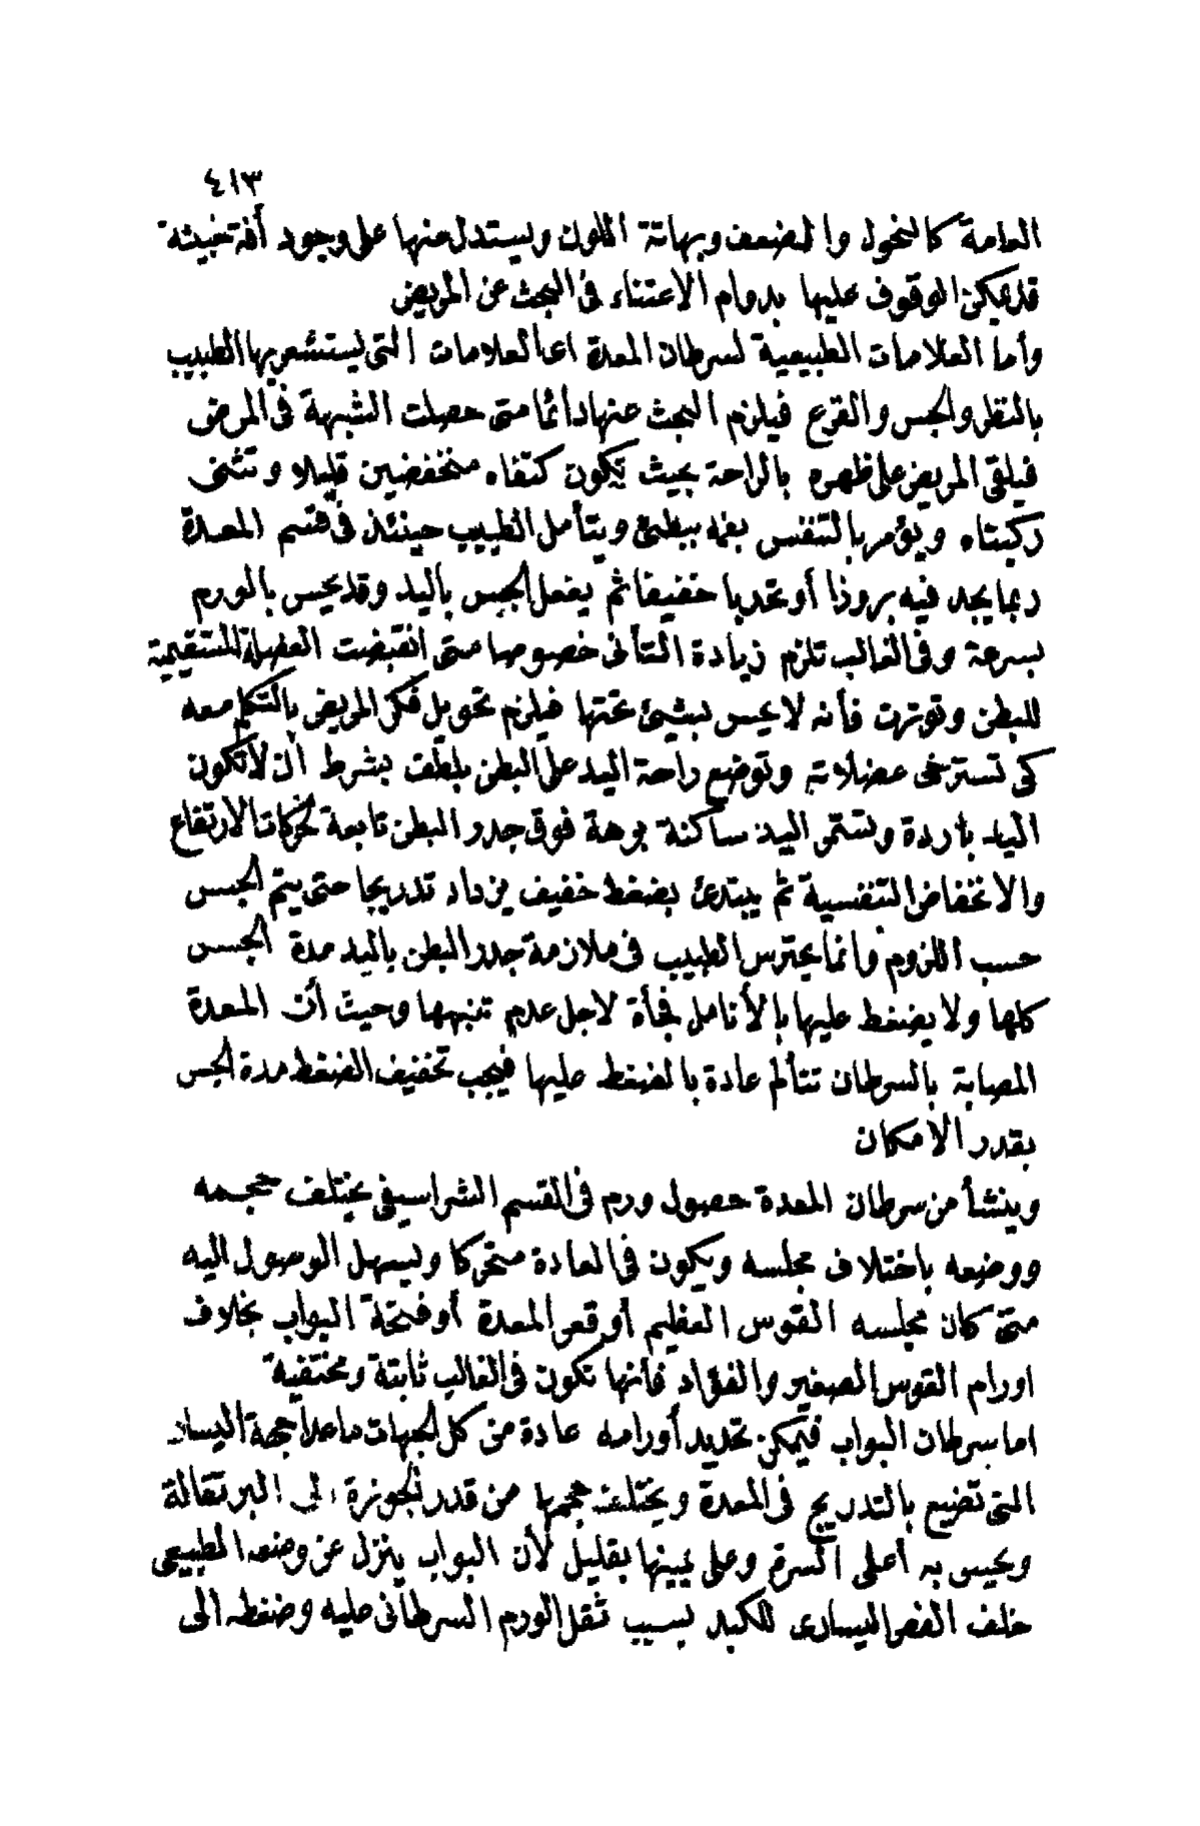 ٤١٣
العامة كالنحول والضعف وبهاتة اللون ويستدل منها على وجود أفة خبيثة
قد يمكن الوقوف عليها بدوام الاعتناء فى البحث عن المريض
وأما العلامات الطبيعية لسرطان المعدة اعنى العلامات التى يستشعر بها الطبيب
بالنظر والجس والقرع فيلزم البحث عنها دائما متى حصلت الشبهة فى المرض
فيلقى المريض على ظهره بالراحة بحيث تكون كتفاه منخفضين قليلا وتثنى
ركبتاه ويؤمر بالتنفس بفمه ببطئ ويتأمل الطبيب حينئذ فى قسم المعدة
ربما يجد فيه بروزا أو تحدبا خفيفا ثم يفعل الجس باليد وقد يحس بالورم
بسرعة وفى الغالب تلزم زيادة التأنى خصوصا متى انقبضت العضلة المستقيمة
للبطن وتوترت فأنه لا يحس بشيئ تحتها فيلزم تحويل فكر المريض بالتكلم معه
كى تسترخى عضلاته وتوضع راحة اليد على البطن بلطف بشرط أن لا تكون
اليد باردة وتستمر اليد ساكنة برهة فوق جدر البطن تابعة لحركات الارتفاع
والانخفاض التنفسية ثم يبتدئ بضغط خفيف يزداد تدريجا حتى يتم الجس
حسب اللزوم وانما يحترس الطبيب فى ملازمة جدر البطن باليد مدة الجس
كلها ولا يضغط عليها بالأنامل فجأة لاجل عدم تنبهها وحيث أن المعدة
المصابة بالسرطان تتألم عادة بالضغط عليها فيجب تخفيف الضغط مدة الجس
بقدر الامكان
وينشأ من سرطان المعدة حصول ورم فى القسم الشراسيفى يختلف حجمه
ووضعه باختلاف مجلسه ويكون فى العادة متحركا ويسهل الوصول اليه
متى كان مجلسه القوس العظيم أو قعر المعدة أو فتحة البواب بخلاف
اورام القوس الصغير والفؤاد فأنها تكون فى الغالب ثابتة ومختفية
اما سرطان البواب فيمكن تحديد أورامه عادة من كل الجهات ما عدا جهة اليسار
التى تضيع بالتدريج فى المعدة ويختلف حجمها من قدر الجوزة الى البرتقالة
ويحس به أعلى السرة وعلى يمينها بقليل لأن البواب ينزل عن وضعه الطبيعى
خلف الفص اليسارى للكبد بسبب ثقل الورم السرطانى عليه وضغطه الى